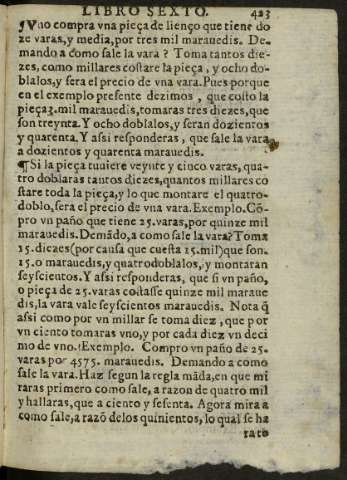 LIBRO SEXTO. 423
¶Vno compra vna pieça de lienço que tiene do
ze varas, y media, por tres mil marauedis. De-
mando a como sale la vara? Toma tantos die-
zes, como millares costare la pieça, y ocho do-
blalos, y sera el precio de vna vara. Pues porque
en el exemplo presente dezimos, que costo la
pieça 3. mil marauedis, tomaras tres diezes, que
son treynta. Y ocho doblalos, y seran dozientos
y quarenta. Y assi responderas, que sale la vara
a dozientos y quarenta marauedis.
¶Si la pieça tuuiere veynte y cinco varas, qua-
tro doblaras tantos diezes, quantos millares co
stare toda la pieça, y lo que montare el quatro-
doblo, sera el precio de vna vara. Exemplo. Cõ-
pro vn paño que tiene 25. varas, por quinze mil
marauedis. Demãdo, a como sale la vara? Toma
15. diezes (por causa que cuesta 15. mil) que son.
15. o marauedis, y quatrodoblalos, y montaran
seyscientos. Y assi responderas, que si vn paño,
o pieça de 25. varas costasse quinze mil maraue
dis, la vara vale seyscientos marauedis. Nota q̃
assi como por vn millar se toma diez, que por
vn ciento tomaras vno, y por cada diez vn deci
mo de vno. Exemplo. Compro vn paño de 25.
varas por 4575. marauedis. Demando a como
sale la vara. Haz segun la regla mãda, en que mi
raras primero como sale, a razon de quatro mil
y hallaras, que a ciento y sesenta. Agora mira a
como sale, a razõ delos quinientos, lo qual se ha
rato